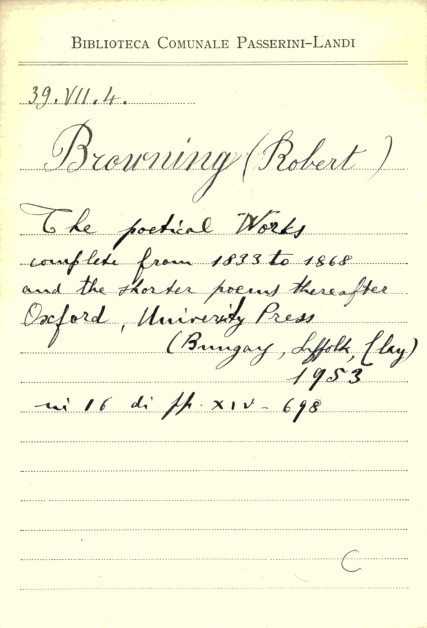 BIBLIOTECA COMUNALE PASSERINI-LANDI
39.VII.4.
Browning (Robert)
The poetical Works
complete from 1833 to 1868
and the shorter poems thereafter
Oxford, University Press
(Bungay, Suffolk, Clay)
1953
in 16 di pp. XIV - 698
C